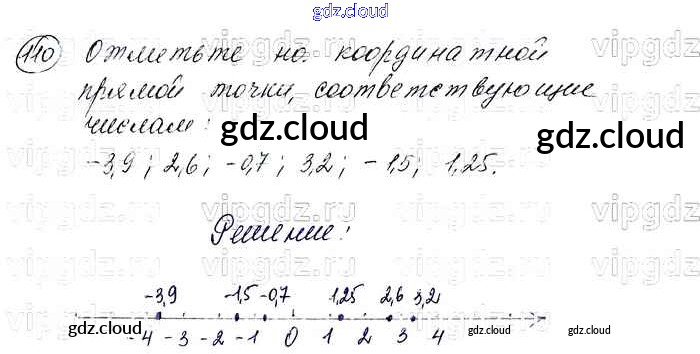 gdz.cloud
110 Отметьте на координатной
прямой точки, соответствующие
числам:
-3,9; 2,6; -0,7; 3,2; -1,5; 1,25.
gdz.cloud
gdz.cloud
Решение:
-3,9 -1,5 -0,7 1,25 2,6 3,2
-4 -3 -2 -1 0 1 2 3 4
gdz.cloud
gdz.cloud
gdz.cloud
vipgdz.ru
vipgdz.ru
vipgdz.ru
vipgdz.ru